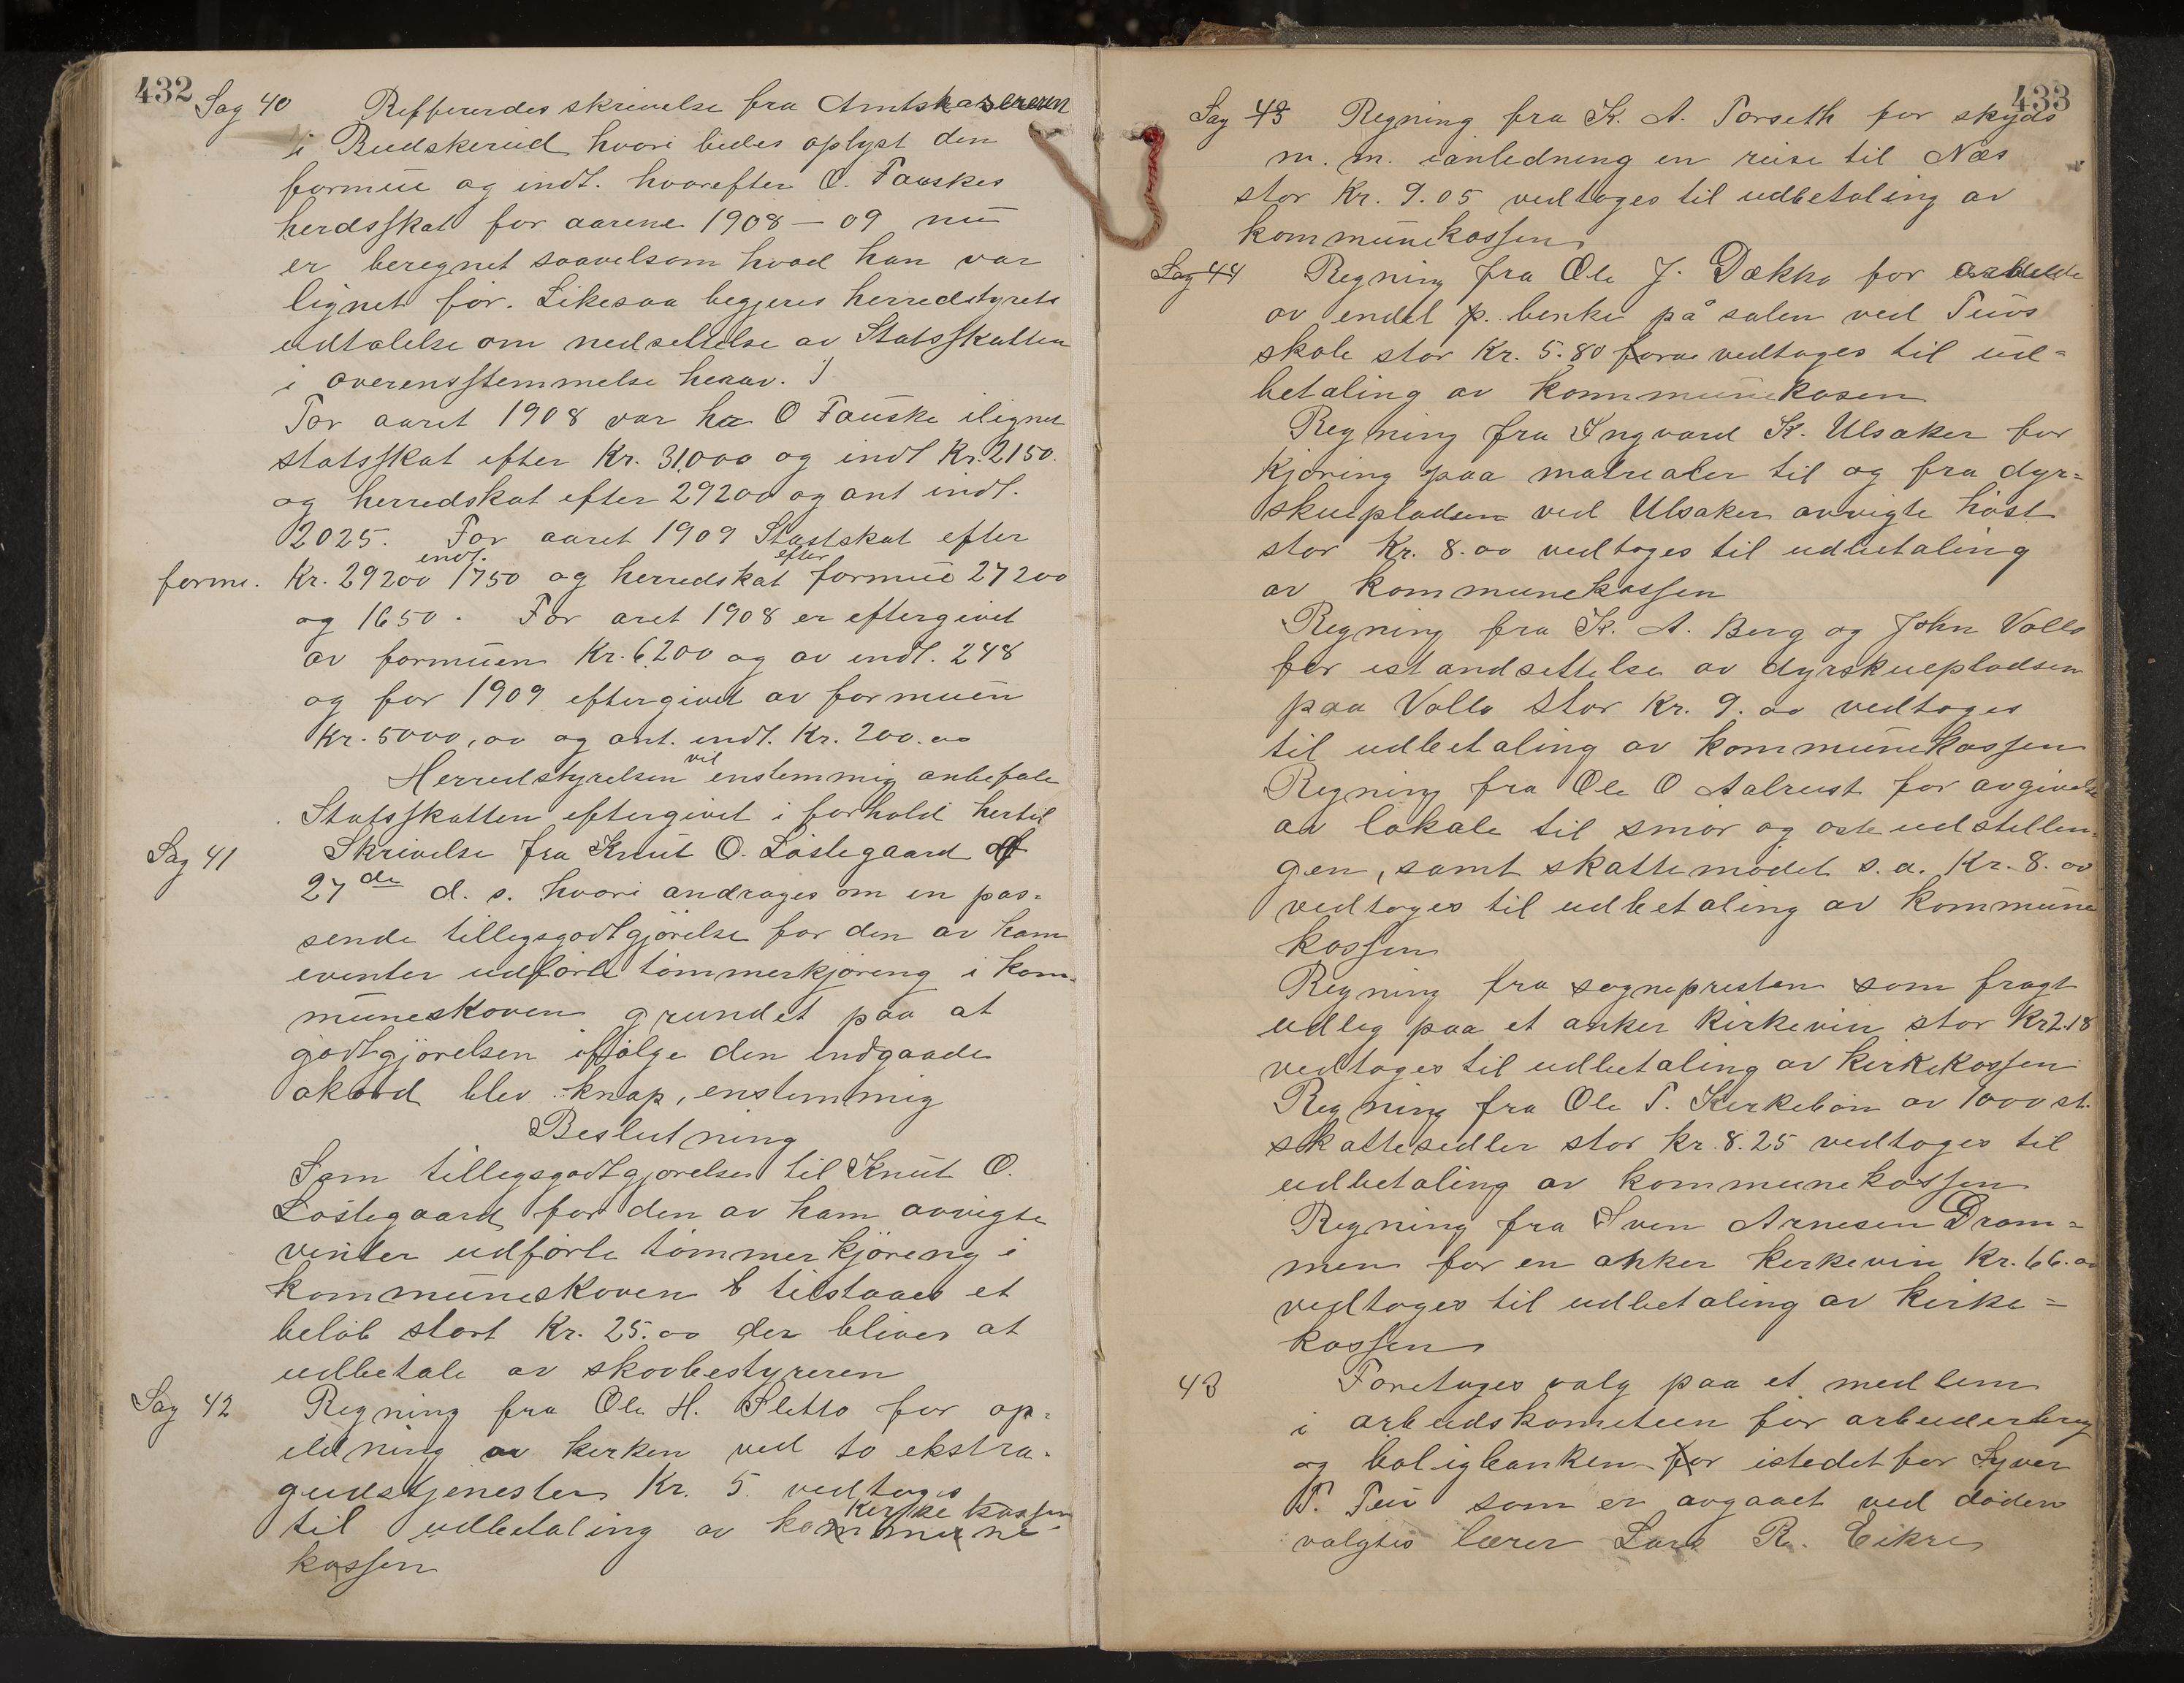 432
Sag 40 Reffereredes skrivelse fra Amtskasereren
i Budskerud hvori bedes oplyst den
formue og indt. hvorefter O. Fauskes
herdsskat for aarene 1908 – 09 nu
er beregnet saavelsom hvad han var
lignet for. Likesaa begjeres herredstyrets
udtalelse om nedsettelse av Statsskatten
i overensstemmelse herav.
For aaret 1908 var O Fauske ilignet
statsskat efter Kr. 31,000 og indt Kr. 2150.
og herredskat efter 29200 og ant indt.
2025. For aaret 1909 Stastskat efter
forme. Kr. 29200 indt. 1750 og herredskat efter formue 27200
og 1650. For aret 1908 er eftergivet
av formuen Kr. 6200 og av indt. 248
og for 1909 eftergivet av formuen
Kr. 5000,00 og ant. indt. Kr. 200.00
Herredstyrelsen vil enstemmig anbefale
Statsskatten eftergivet i forhold hertil
Sag 41 Skrivelse fra Knut O. Löstegaard df
27de d. s. hvori andrages om en pas=
sende tillegsgodtgjörelse for den av ham
eventer udförte tömmerkjöreng i kom=
muneskoven grundet paa at
godtgjörelsen ifölge den indgaade
akord blev knap, enstemmig
Beslutning
Som tillegsgodtgjorelse til Knut O.
Löstegaard for den av ham avvigte
vinter udförte tömmerkjöreng i
kommuneskoven tilstaaes et
belöb stort Kr. 25.00 der bliver at
udbetale av skovbestyreren
Sag 42 Regning fra Ole H. Sletto for op=
ildning av kirken ved to ekstra=
gudstjenester Kr. 5. vedtages
til udbetaling av kommune kirkekassen
kassen
433
Sag 43 Regning fra K. A. Torseth for skyds
m. m. ianledning en reise til Næs
stor Kr. 9.05 vedtages til udbetaling av
kommunekassen
Sag 44 Regning fra Ole J. Dækko for
av endel p. benke på salen ved Tuvs
skole stor Kr. 5.80 vedtages til ud=
betaling av kommunekasen
Regning fra Ingvard K. Ulsaker for
Kjöring paa matrealer til og fra dyr=
skuepladsen ved Ulsaker avvigte höst
stor Kr. 8.00 vedtages til udbetaling
av kommunekassen
Regning fra K. A. Berg og John Vollo
for istandsettelse av dyrskuepladsen
paa Vollo stor Kr. 9.00 vedtages
til udbetaling av kommunekassen
Regning fra Ole O Aalrust for avgivelse
av lokale til smör og osteudstellin=
gen, samt skattemödet s. a. Kr. 8.00
vedtages til udbetaling av kommune
kassen
Regning fra sognepresten som fragt
udleg paa et anker kirkevin stor Kr 2.18
vedtages til udbetaling av kirkekassen
Regning fra Ole T. Kirkebön av 1000 st.
skattesedler stor kr. 8.25 vedtages til
udbetaling av kommunekassen
Regning fra Sven Arnesen Dram=
men for en anker kerkevin Kr. 66.00
vedtages til udbetaling av kirke=
kassen
43 Foretages valg paa et medlem
i arbeidskometeen for arbeiderbrug
og boligbanken for istedet for Syver
T. Tuv som er avgaaet ved döden
valgtes lærer Lars R. Eikre